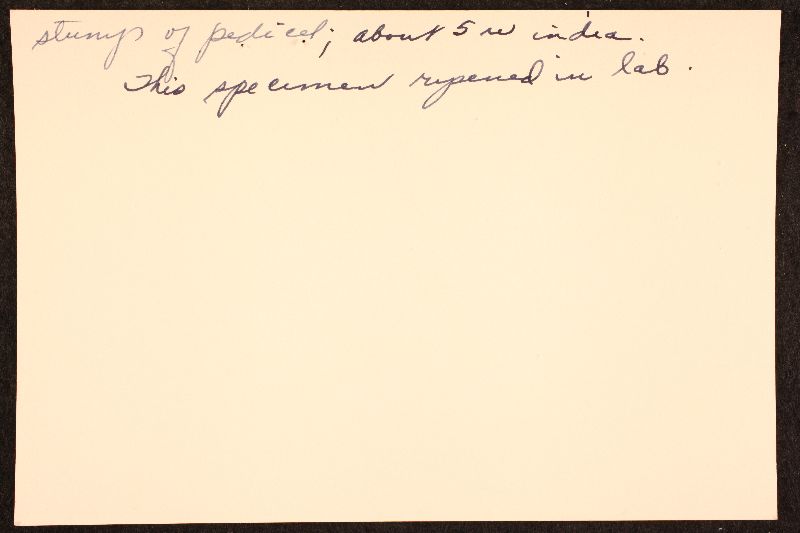 stumps of pedicel; about 5 w in dia.
This specimen ripened in lab.